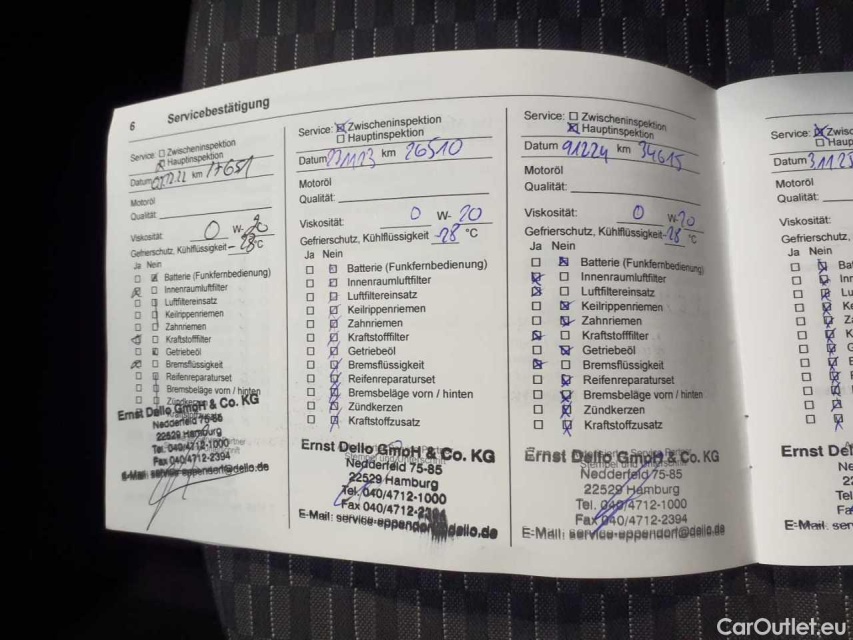 6 Servicebestätigung
Service: Zwischeninspektion
Hauptinspektion
Datum 07.12.22 km 17651
Motoröl
Qualität:
Viskosität: 0 W-20
Gefrierschutz, Kühlflüssigkeit -28 °C
Ja Nein
Batterie (Funkfernbedienung)
Innenraumluftfilter
Luftfiltereinsatz
Keilrippenriemen
Zahnriemen
Kraftstofffilter
Getriebeöl
Bremsflüssigkeit
Reifenreparaturset
Bremsbeläge vorn / hinten
Zündkerzen
Ernst Dello GmbH & Co. KG
Nedderfeld 75-85
22529 Hamburg
Tel. 040/4712-1000
Fax 040/4712-2394
E-Mail: service-eppendorf@dello.de
Service: Zwischeninspektion
Hauptinspektion
Datum km 26510
Motoröl
Qualität:
Viskosität: 0 W-20
Gefrierschutz, Kühlflüssigkeit -28 °C
Ja Nein
Batterie (Funkfernbedienung)
Innenraumluftfilter
Luftfiltereinsatz
Keilrippenriemen
Zahnriemen
Kraftstofffilter
Getriebeöl
Bremsflüssigkeit
Reifenreparaturset
Bremsbeläge vorn / hinten
Zündkerzen
Kraftstoffzusatz
Ernst Dello GmbH & Co. KG
Stempel und Unterschrift
Nedderfeld 75-85
22529 Hamburg
Tel. 040/4712-1000
Fax 040/4712-2394
E-Mail: service-eppendorf@dello.de
Service: Zwischeninspektion
Hauptinspektion
Datum 91224 km 34615
Motoröl
Qualität:
Viskosität: 0 W-20
Gefrierschutz, Kühlflüssigkeit -28 °C
Ja Nein
Batterie (Funkfernbedienung)
Innenraumluftfilter
Luftfiltereinsatz
Keilrippenriemen
Zahnriemen
Kraftstofffilter
Getriebeöl
Bremsflüssigkeit
Reifenreparaturset
Bremsbeläge vorn / hinten
Zündkerzen
Kraftstoffzusatz
Ernst Dello GmbH & Co. KG
Stempel und Unterschrift
Nedderfeld 75-85
22529 Hamburg
Tel. 040/4712-1000
Fax 040/4712-2394
E-Mail: service-eppendorf@dello.de
Service: Zwisc
Haup
Datum
Motoröl
Qualität:
Viskosität:
Gefrierschutz,
Ja Nein
Bat
Inn
Lu
Ke
Za
Kr
G
B
Ernst Del
E-Mail: ser
CarOutlet.eu